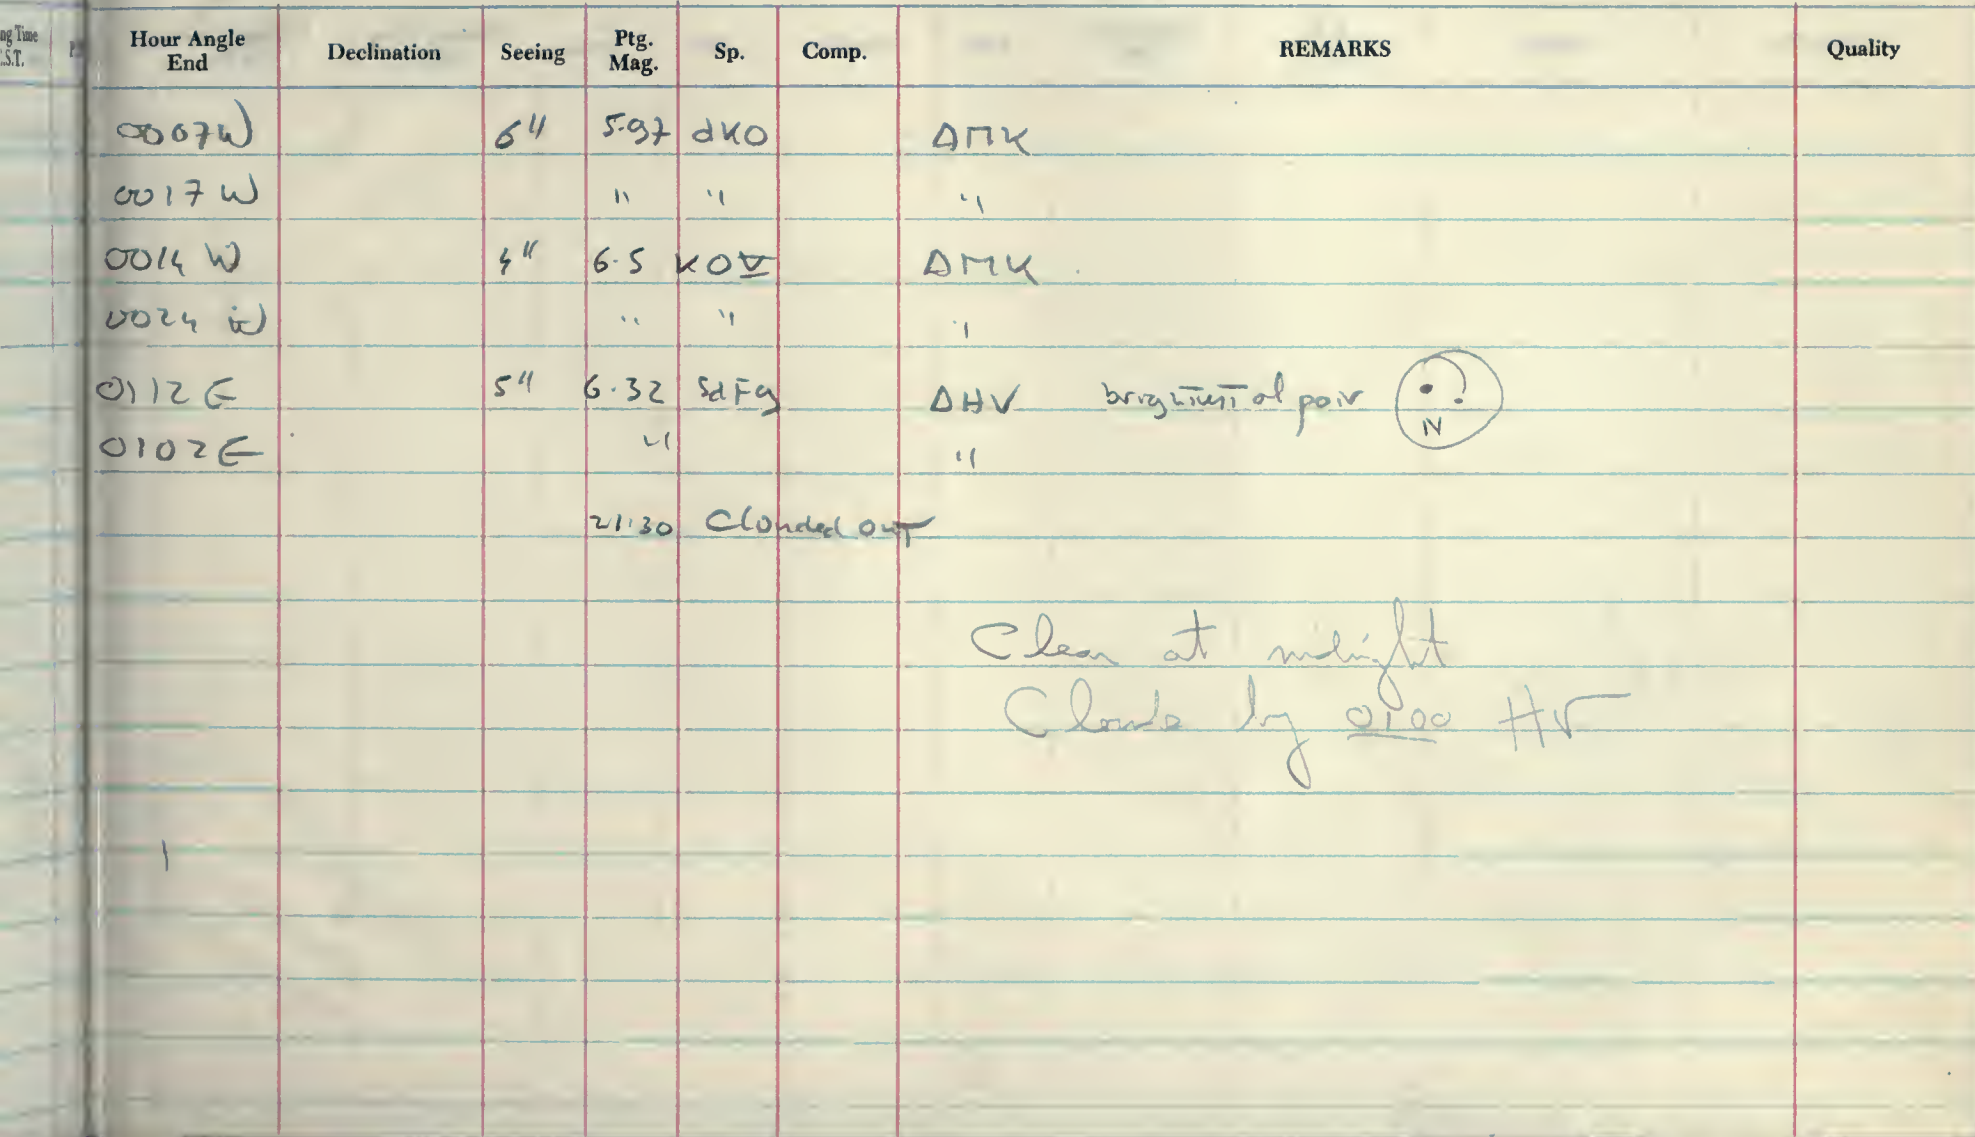 ng Time Hour Angle Declination Seeing Ptg. Sp. Comp. REMARKS Quality
.S.T. End Mag.
0007W 6" 5.97 dK0 ΔMK
0017W " " "
0014 W 4" 6.5 K0V ΔMK
0024 W " " "
0112E 5" 6.32 sdF9 ΔHV of pair N
0102E " "
21:30 Clouded out
Clear at midnight
Clouds by 0100 HV